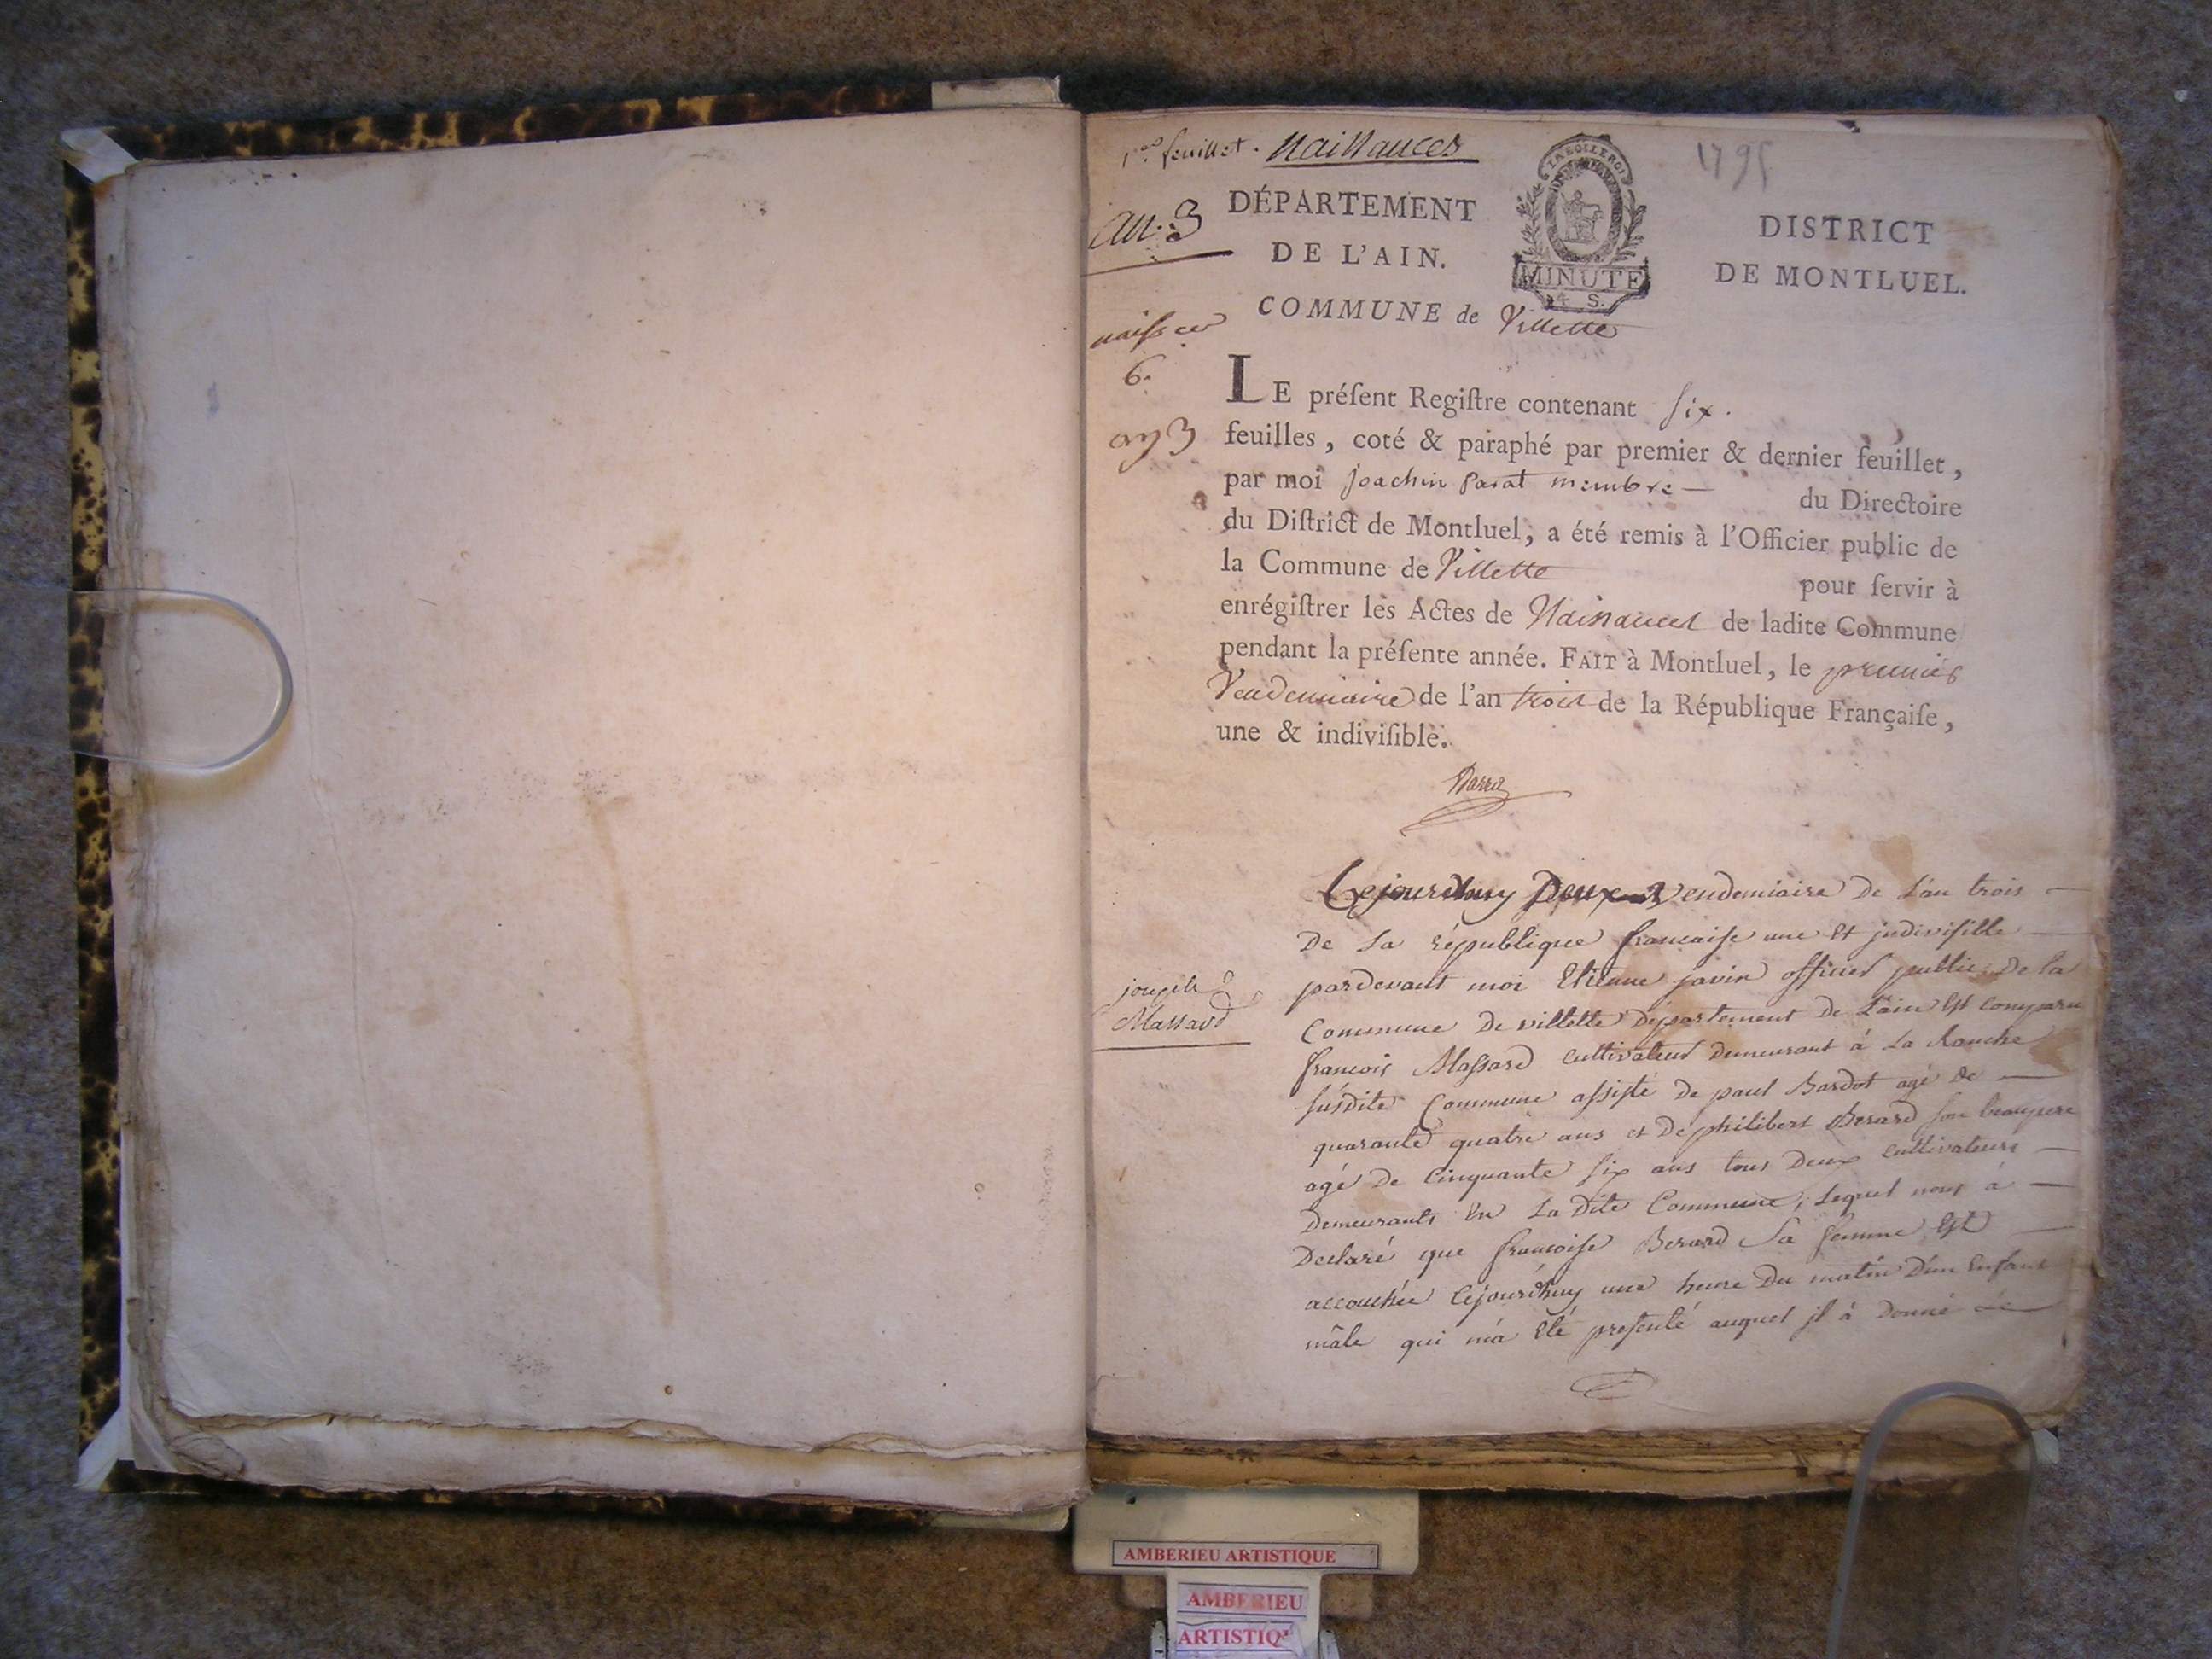 1er feuillet. Naissances
1795
an. 3
DÉPARTEMENT
DE L'AIN.
LA LOI LE ROI
MINUTE
4 S.
DISTRICT
DE MONTLUEL.
COMMUNE de Villette
naissces
6.
an 3
LE préſent Regiſtre contenant six.
feuilles, coté & paraphé par premier & dernier feuillet,
par moi joachin parat membre — du Directoire
du Diſtrict de Montluel, a été remis à l'Officier public de
la Commune de Villette pour ſervir à
enrégiſtrer les Actes de Naissances de ladite Commune
pendant la préſente année. FAIT à Montluel, le premier
Vendemiaire de l'an trois de la République Françaiſe,
une & indiviſible.
Cejourdhuy Deux vendemiaire De L'an trois —
De La république francaise une Et jndivisible —
pardevant moi Etienne javin officier public De la
Commune De villette Département De L'ain Est Comparu
joseph
Massard
francois Massard Cultivateur Demeurant à La Ranche
susdite Commune assisté De paul Bardot agé de —
quarante quatre ans et De philibert Berard son beaupere
agé De Cinquante six ans tous Deux Cultivateurs —
Demeurants En La Dite Commune; Lequel nous à —
Declaré que francoise Berard Sa femme Est —
accouchée Cejourdhuy une heure Du matin D'un Enfant
mâle qui m'a Eté presenté auquel jl à Donné Le
AMBERIEU ARTISTIQUE
AMBERIEU
ARTISTIQ